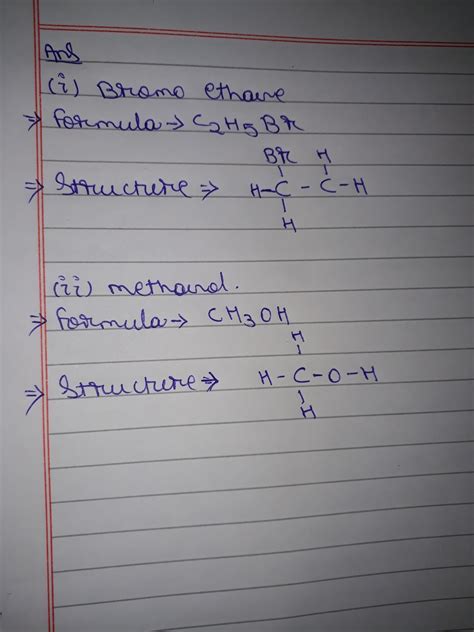 Ans
(i) Bromo ethane
⇒ Formula → C2H5Br
Br H
⇒ Structure ⇒ H-C-C-H
H
(ii) methanol.
⇒ Formula → CH3OH
H
⇒ Structure ⇒ H-C-O-H
H